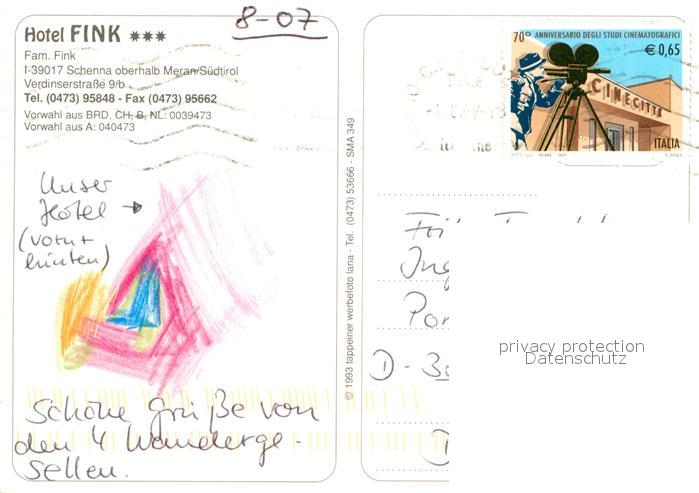 8-07
Hotel FINK ***
Fam. Fink
I-39017 Schenna oberhalb Meran/Südtirol
Verdinserstraße 9/b
Tel. (0473) 95848 - Fax (0473) 95662
Vorwahl aus BRD, CH, B, NL: 0039473
Vorwahl aus A: 040473
Unser
Hotel →
(vorn +
hinten)
Schöne Grüße von
den 4 Wanderge-
sellen.
© 1993 tappeiner werbefoto lana - Tel. (0473) 53666 - SMA 349
70° ANNIVERSARIO DEGLI STUDI CINEMATOGRAFICI
€ 0,65
CINECITTÀ
ITALIA
D - 
privacy protection
Datenschutz